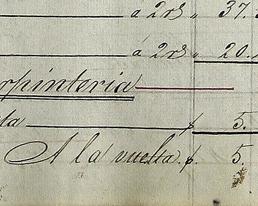 á 2rs " 37.
á 2rs " 20.
rpinteria
ta $ 5.
A la vuelta $ 5.